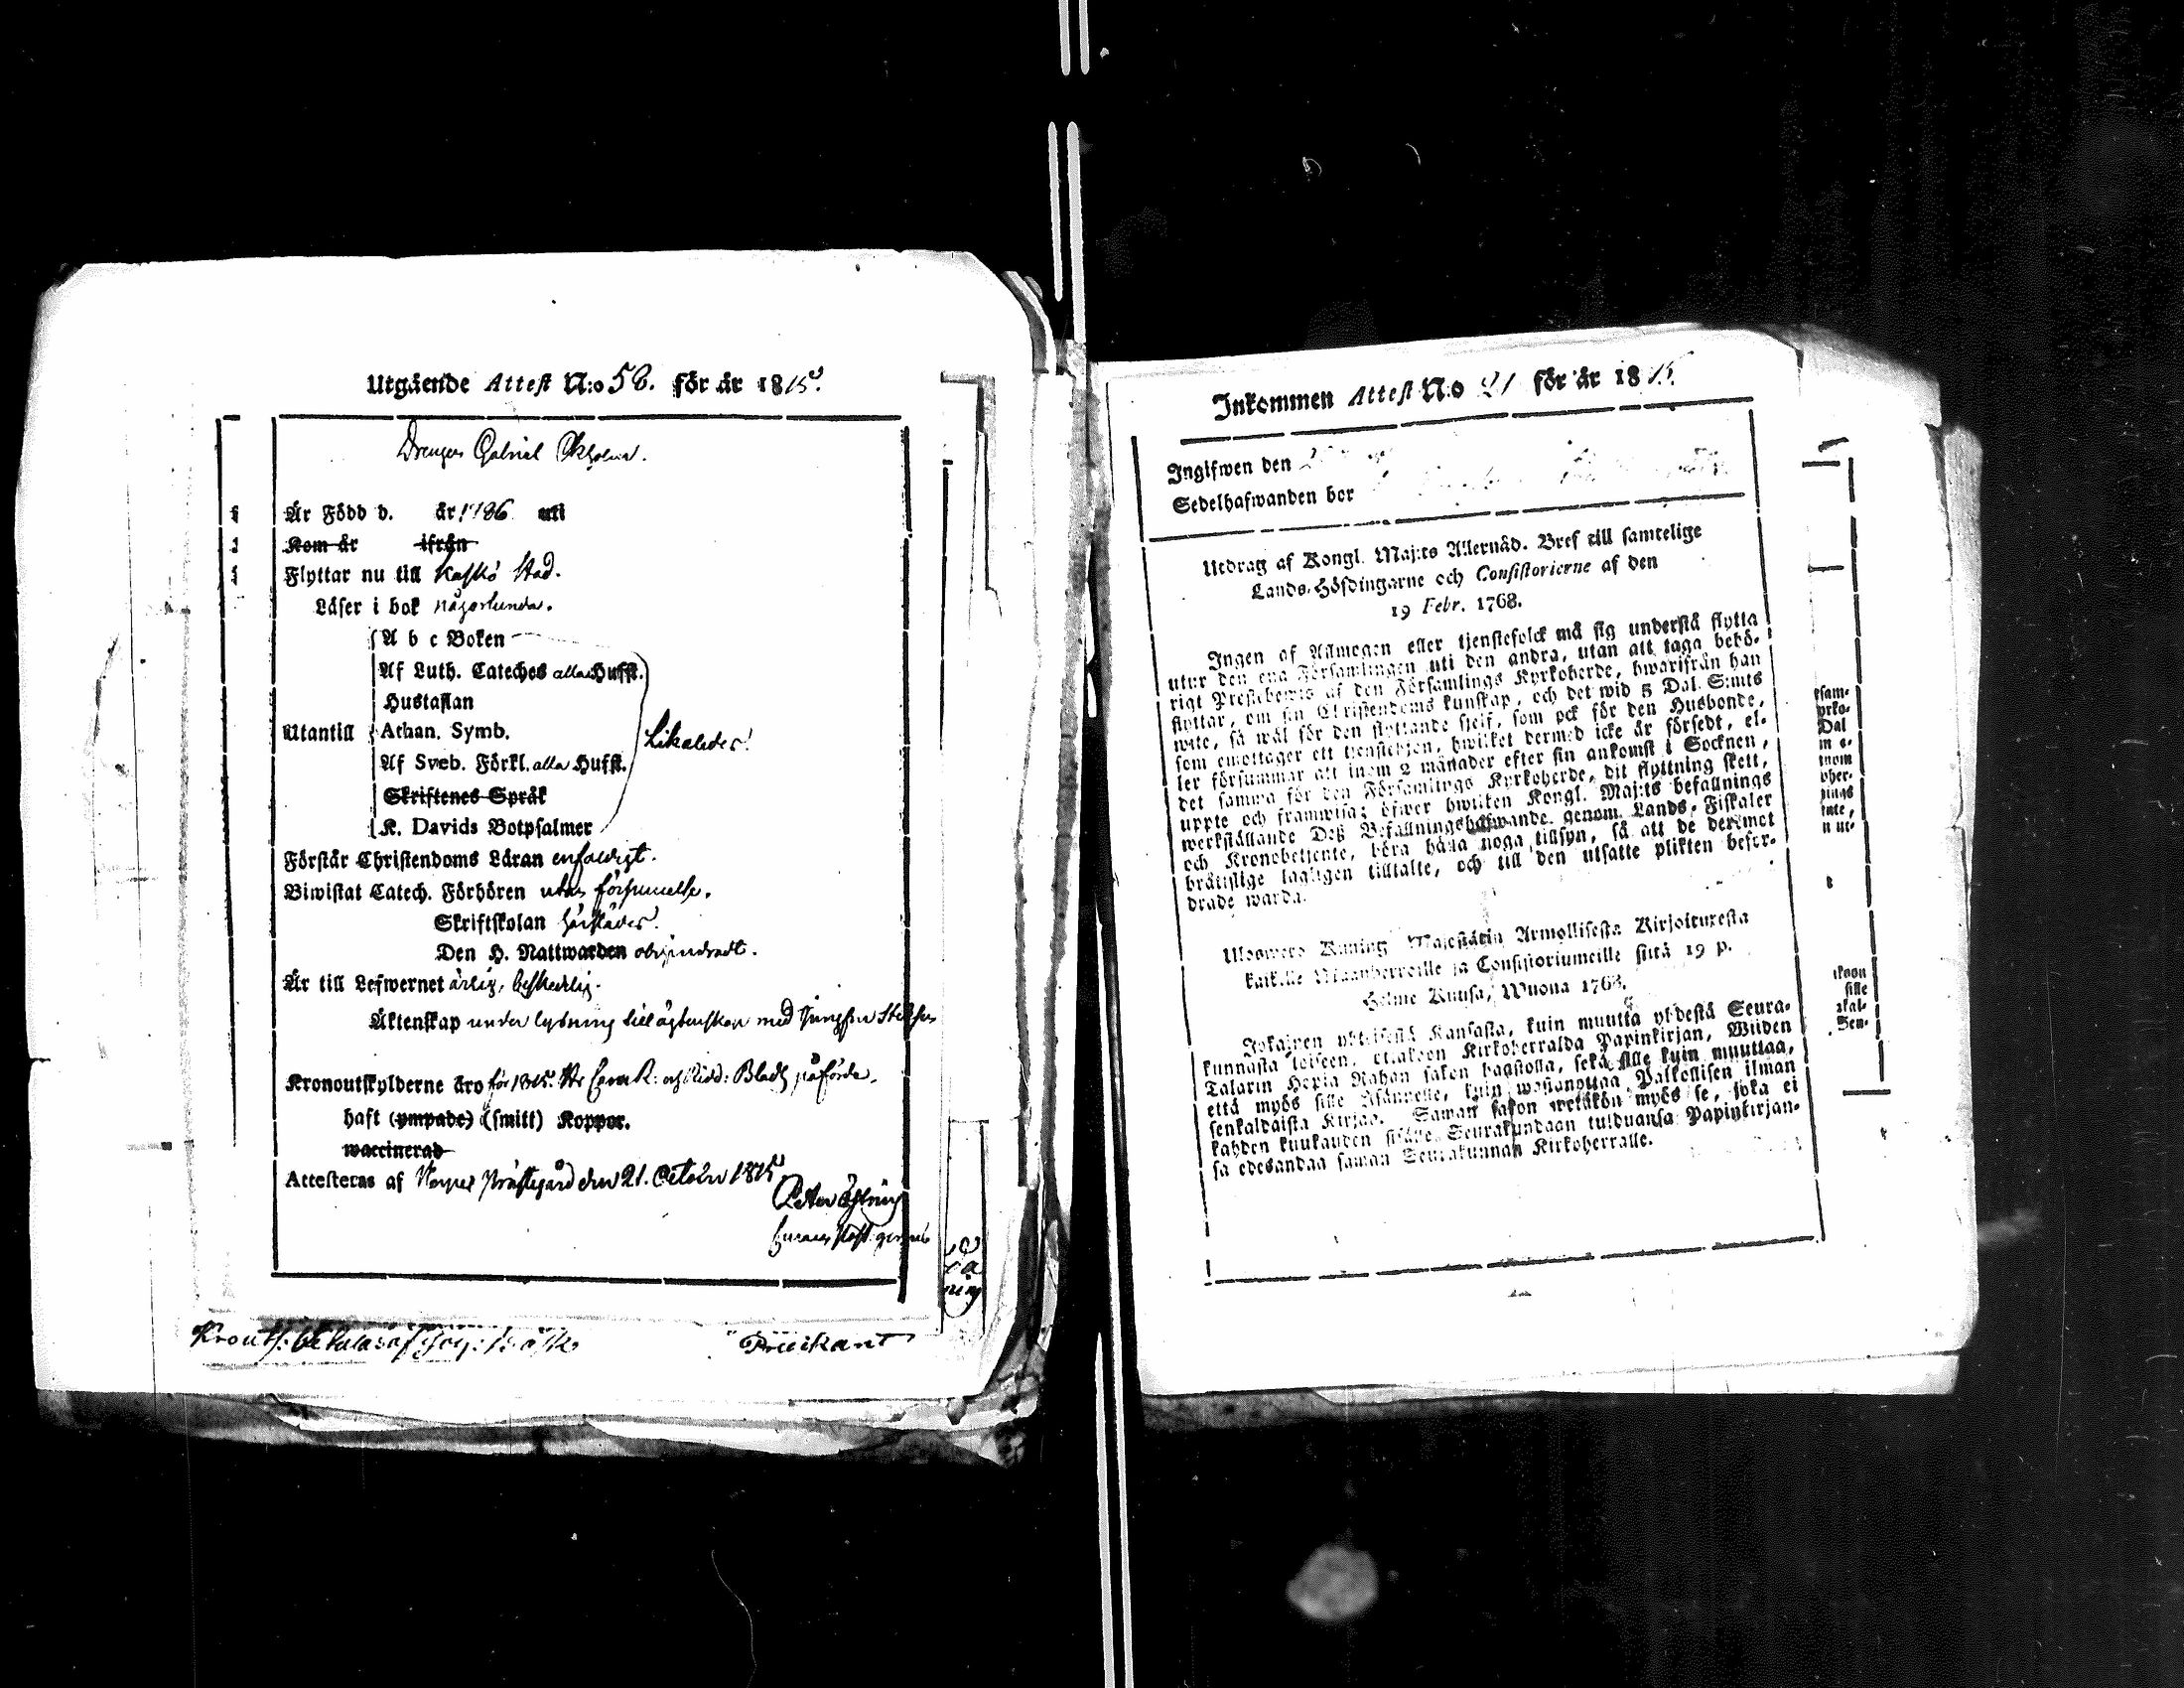 Utgående Attest N:o 58. för år 1815.
Drengen Gabriel
Är Född d. år 1786 uti
Kom år ifrån
Flyttar nu till Kaskö Stad.
Läser i bok någorlunda.
A b c Boken
Af Luth. Cateches alla Hufst.
Hustaflan
Utantill Athan. Symb. Likaledes.
Af Sveb. Förkl. alla Hufst.
Skriftenes Språk
K. Davids Botpsalmer
Förstår Christendoms Läran enfaldigt.
Biwistat Catech. Förhören utan försummelse.
Skriftskolan
Den H. Nattwarden obehindradt.
Är till Lefwernet ärlig, beskedlig.
Äktenskap under lysning till ägtenskap med
Kronoutskylderne äro för 1815 påförde.
haft (ympade) (smitt) Koppor.
waccinerad
Attesteras af Prästegård den 21. October 1815
Peter
Inkommen Attest N:o 21 för år 18
Ingifwen den
Sedelhafwanden bor
Utdrag af Kongl. Maj:ts Allernåd. Bref till samtelige
Lands-Höfdingarne och Consistorierne af den
19 Febr. 1768.
Ingen af Allmogen eller tjenstefolck må sig understå flytta
utur den ena Församlingen uti den andra, utan att taga behö-
rigt Prestebewis af den Församlings Kyrkoherde, hwarifrån han
flyttar, om sin Christendoms kunskap, och det wid 5 Dal. S:mts
wite, så wäl för den flyttande sjelf, som ock för den Husbonde,
som emottager ett tjenstehjon, hwilket dermed icke är försedt, el-
ler försummar att inom 2 månader efter sin ankomst i Socknen,
det samma för den Församlings Kyrkoherde, dit flyttning skett,
uppte och framwisa; öfwer hwilken Kongl. Maj:ts befallnings
werkställande Deß Befallningshafwande genom Lands-Fiskaler
och Kronobetjente, böra hålla noga tillsyn, så att de deremot
bråtislige lagligen tilltalte, och till den utsatte plikten befor-
drade warda.
Kuning Majestätin Armollisesta Kirjoituxesta
kaikille Maanherroille ja Consistoriumeille siitä 19 p.
Helme Kuusa, Wuona 1768.
Jokainen yhteisestä Kansasta, kuin muutta yhdestä Seura-
kunnasta toiseen, ottakoon Kirkoherralda Papinkirjan, Wiiden
Talarin Hopia Rahan sakon haastolla, sekä sille kuin muuttaa,
että myös sille Isännelle, kuin wastanottaa Palkollisen ilman
senkaldaista Kirjao. Saman sakon wetäkön myös se, joka ei
kahden kuukauden sisälle Seurakundaan tulduansa Papinkirjan-
sa edesandaa saman Seurakunnan Kirkoherralle.